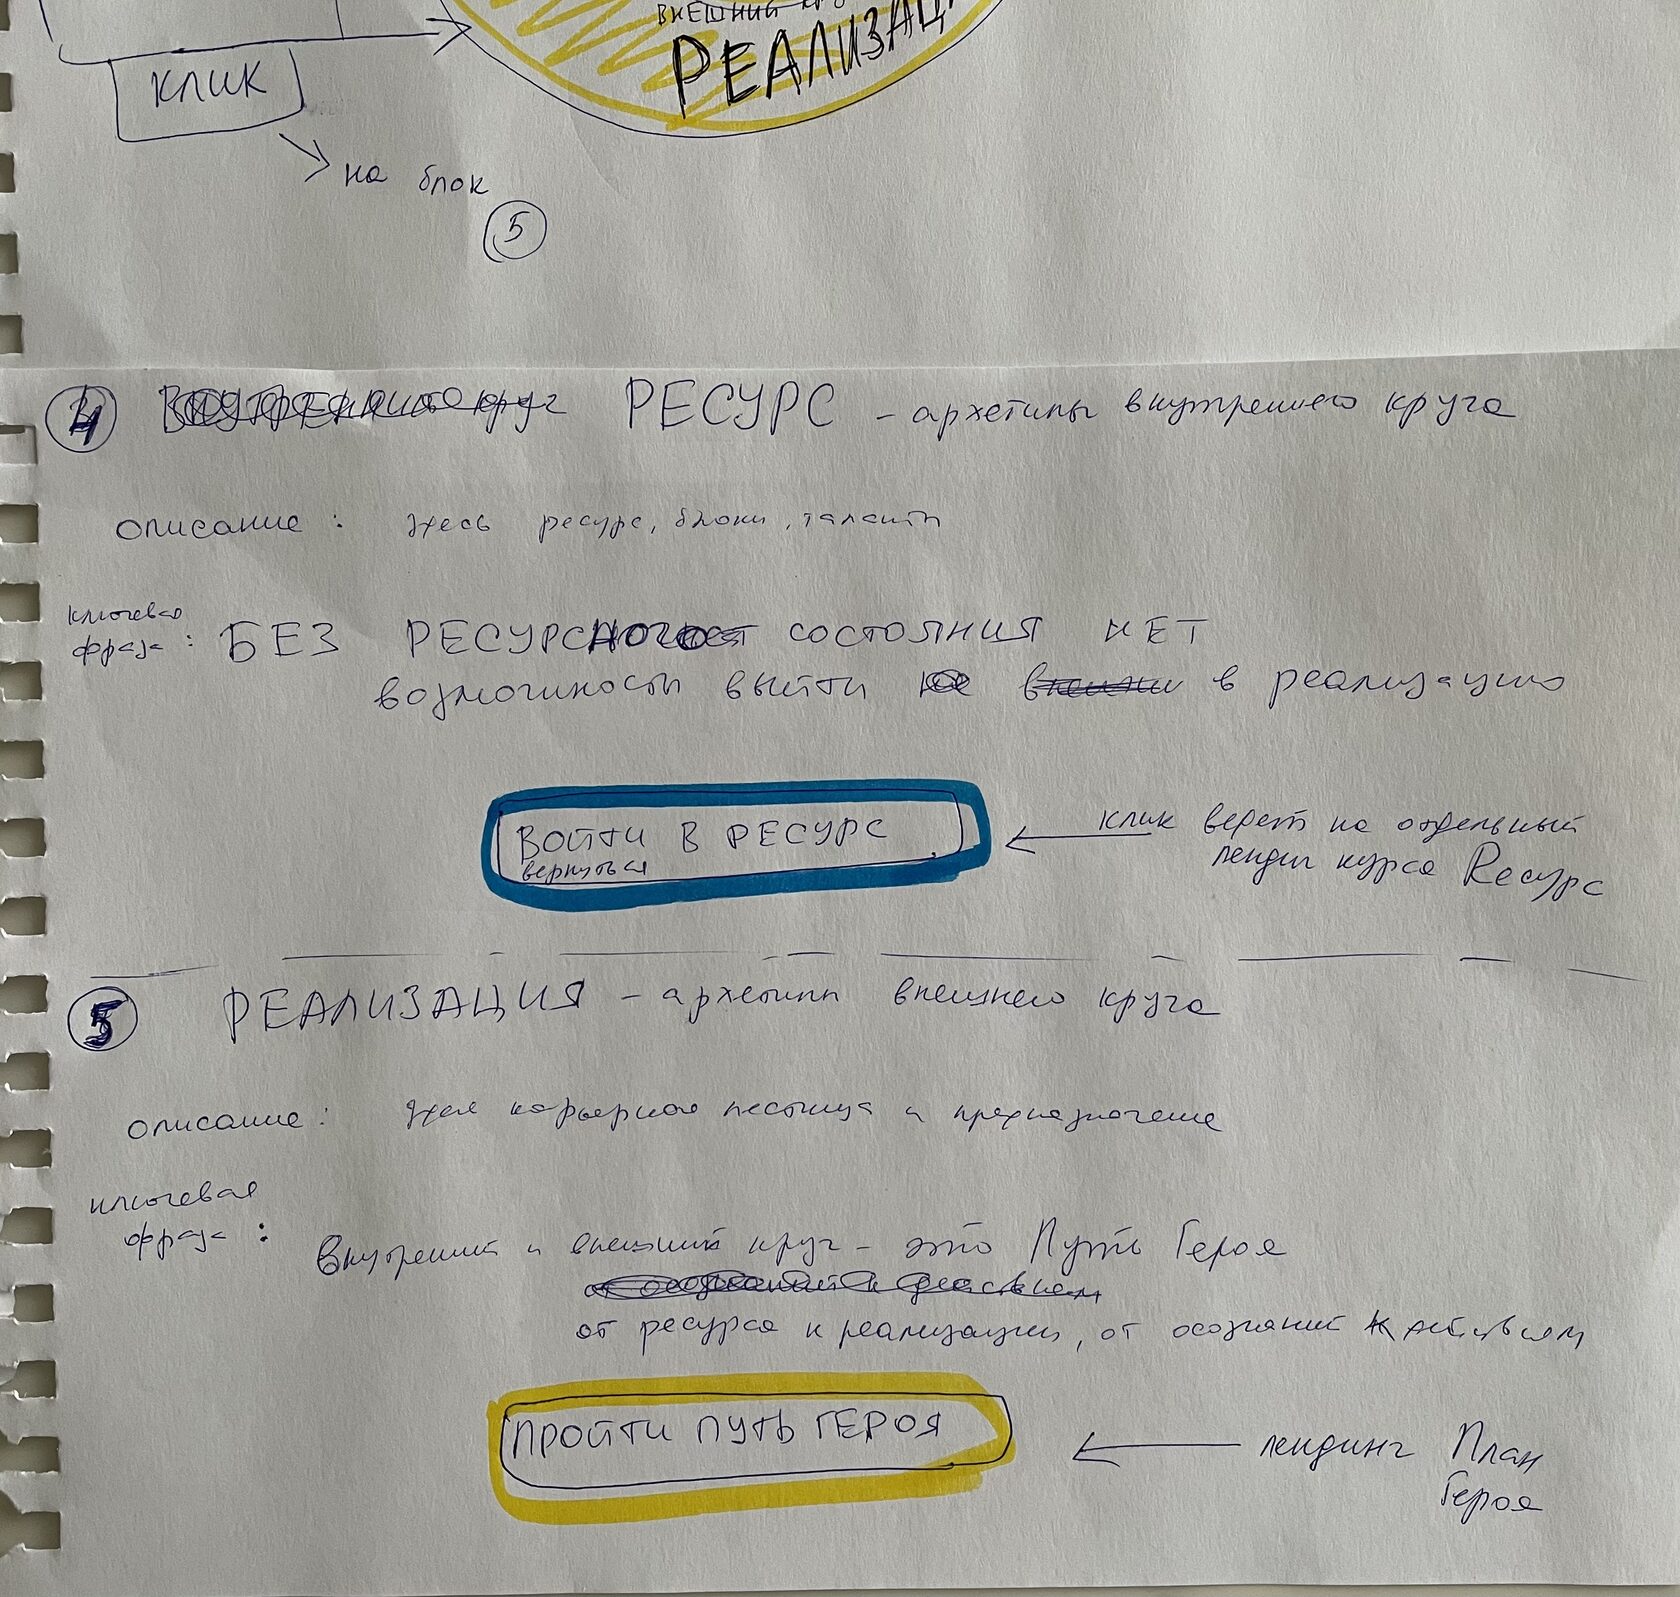 ВНЕШНИЙ
РЕАЛИЗАЦ
КЛИК
на блок
5
4 Внутренний круг РЕСУРС - архетипы внутреннего круга
описание: здесь ресурс, блоки, таланты
ключевая
фраза: БЕЗ РЕСУРСНОГО СОСТОЯНИЯ НЕТ
возможности выйти в реализацию
ВОЙТИ В РЕСУРС
вернуться
клик ведет на отдельный
лендинг курса Rесурс
5 РЕАЛИЗАЦИЯ - архетипы внешнего круга
описание: здесь карьерная лестница и предназначение
ключевая
фраза: Внутренний и внешний круг - это Путь Героя
от ресурса к реализации, от осознаний к действиям
ПРОЙТИ ПУТЬ ГЕРОЯ
лендинг План
Героя